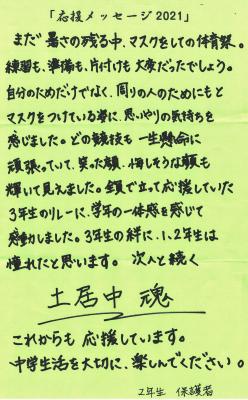 「応援メッセージ2021」
まだ暑さの残る中、マスクをしての体育祭。
練習も、準備も、片付けも大変だったでしょう。
自分のためだけでなく、周りの人のためにもと
マスクをつけている姿に、思いやりの気持ちを
感じました。どの競技も一生懸命に
頑張っていて、笑った顔、悔しそうな顔も
輝いて見えました。全員で立って応援していた
3年生のリレーに、学年の一体感を感じて
感動しました。3年生の絆に、1、2年生は
憧れたと思います。次へと続く
土居中 魂
これからも応援しています。
中学生活を大切に、楽しんでください。
2年生 保護者